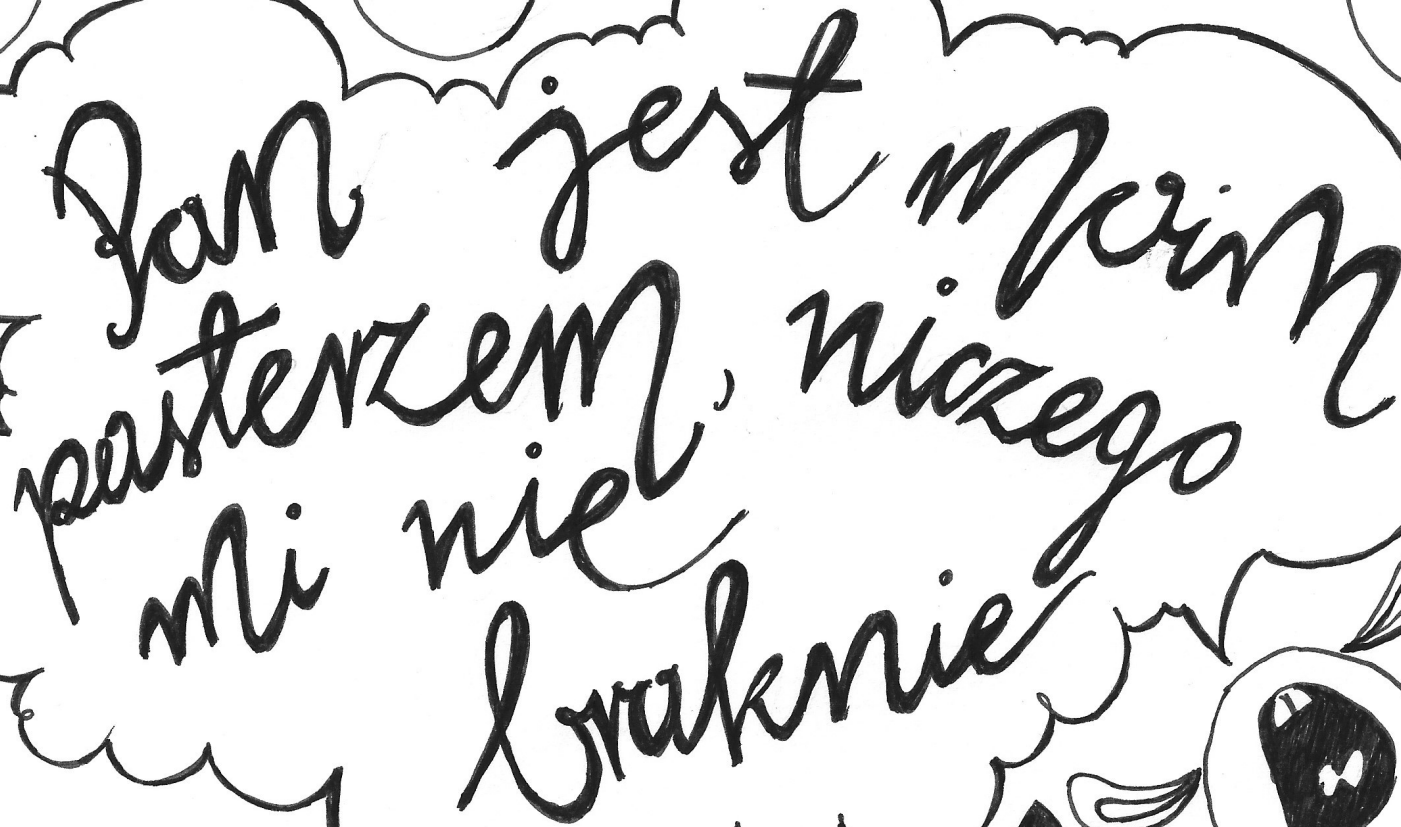 Pan jest moim
pasterzem, niczego
mi nie
braknie